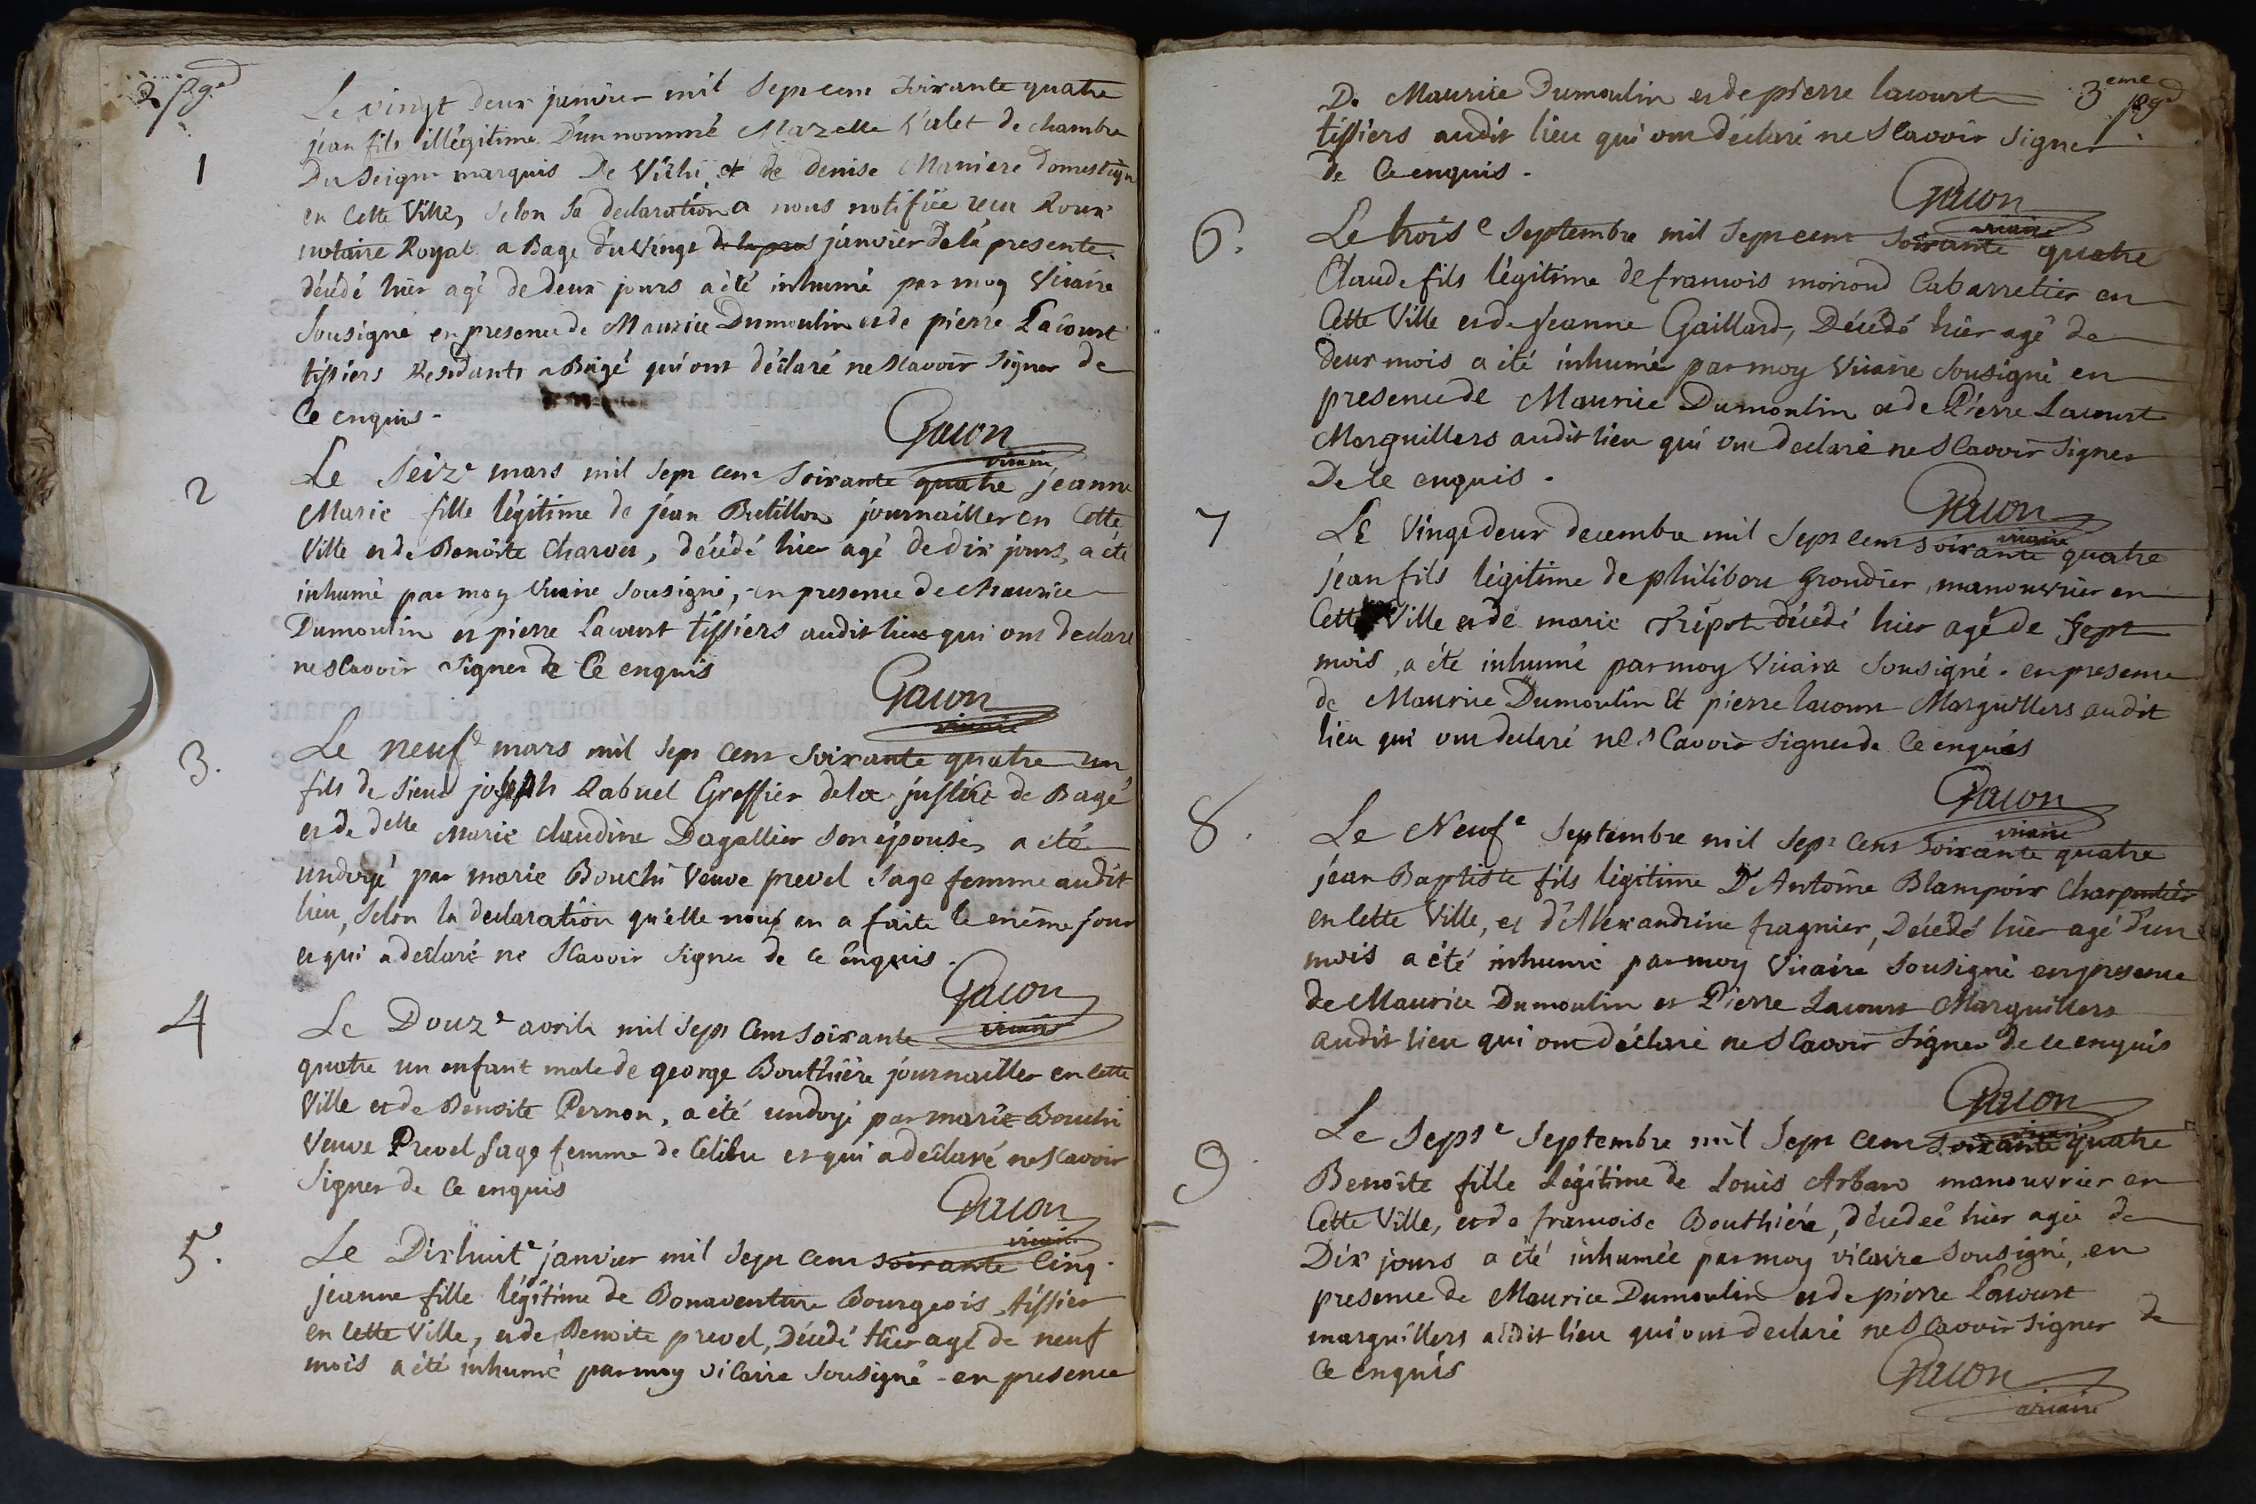 2 pge
1
Le vingt deux janvier mil sept cent soixante quatre
jean fils illégitime D'un nommé Mazelle Valet de chambre
Du Seigr marquis De Vichi, et de denise Maniere domestique
en Cette Ville, selon sa declaration a nous notifiée recu Roux
notaire Royal a Bage du vingt de la pres janvier de la presente
décédé hier agé de deux jours a été inhumé par moy Vicaire
Sousigné en presence de Maurice Dumoulin et de pierre Lacourt
tissiers Residants a Bagé qui ont déclaré ne sçavoir signer de
Ce enquis -
Gacon
vicaire
2
Le Seize mars mil sept cent soixante quatre jeanne
Marie fille légitime de jean Bretillon journailler en Cette
Ville et de Benoite Charvet, décédé hier agé de dix jours, a été
inhumé par moy Vicaire sousigné, en presence de Maurice
Dumoulin et pierre Lacourt tissiers audit lieu qui ont declare
ne scavoir signer de Ce enquis
Gacon
vicaire
3.
Le neufe mars mil sept cent soixante quatre un
fils de sieur joseph Rabuel Greffier de la justice de Bagé
et de delle Marie Claudine Dagallier son épouse, a été
undoyé par marie Bouchi Veuve prevel sage femme audit
lieu, selon la declaration qu'elle nous en a faite le même jour
et qui a declaré ne scavoir signer de ce enquis.
Gacon
vicaire
4
Le Douze avril mil sept cent soixante
quatre un enfant male de george Bouthiere journailler en cette
Ville et de Benoite Pernon, a été undoyé par marie Bouchi
Veuve Prevel sage femme de Celieu et qui a declaré ne scavoir
signer de ce enquis
Gacon
vicaire
5.
Le Dixhuite janvier mil sept cent soixante Cinq.
jeanne fille légitime de Bonaventure Bourgeois tissier
en cette Ville, et de Benoite prevel, Décédé hier agé de neuf
mois a été inhumé par moy vicaire sousigné - en presence
3eme pge
De Maurice Dumoulin et de pierre lacourt
tissiers audit lieu qui ont déclaré ne scavoir signer
de Ce enquis -
Gacon
vicaire
6.
Le troise septembre mil sept cent soixante quatre
Claude fils légitime de francois moriond Cabarretier en
Cette Ville et de Jeanne Gaillard, Décédé hier agé de
deux mois a été inhumé par moy Vicaire sousigné en
presence de Maurice Dumoulin et de Pierre Lacourt
Marguillers audit lieu qui ont declaré ne scavoir signer
De Ce enquis -
Gacon
vicaire
7
LE Vingtdeux decembre mil sept cent soixante quatre
jean fils légitime de philibert Grondier manouvrier en
Cette Ville et de marie Tripot décédé hier agé de sept
mois, a été inhumé par moy Vicaire sousigné. en presence
de Maurice Dumoulin Et pierre lacourt Marguillers audit
lieu qui ont declaré ne scavoir signer de Ce enquis
Gacon
vicaire
8.
Le Neufe septembre mil sept Cent soixante quatre
jean Baptiste fils légitime D'Antoine Blampoix Charpentier
en Cette Ville, et d'Alexandrine fragnier, Décédé hier agé d'un
mois a été inhumé par moy Vicaire sousigné en presence
de Maurice Dumoulin et Pierre Lacourt Marguillers
audit lieu qui ont déclaré ne scavoir signer de ce enquis
Gacon
vicaire
9
Le Septe septembre mil sept cent soixante quatre
Benoite fille légitime de Louis Arban manouvrier en
Cette Ville, et de francoise Bouthiére, décedeé hier ageé de
Dix jours a été inhumée par moy vicaire sousigné, en
presence de Maurice Dumoulin et de pierre Lacourt
marguillers audit lieu qui ont declaré ne scavoir signer de
Ce enquis
Gacon
vicaire